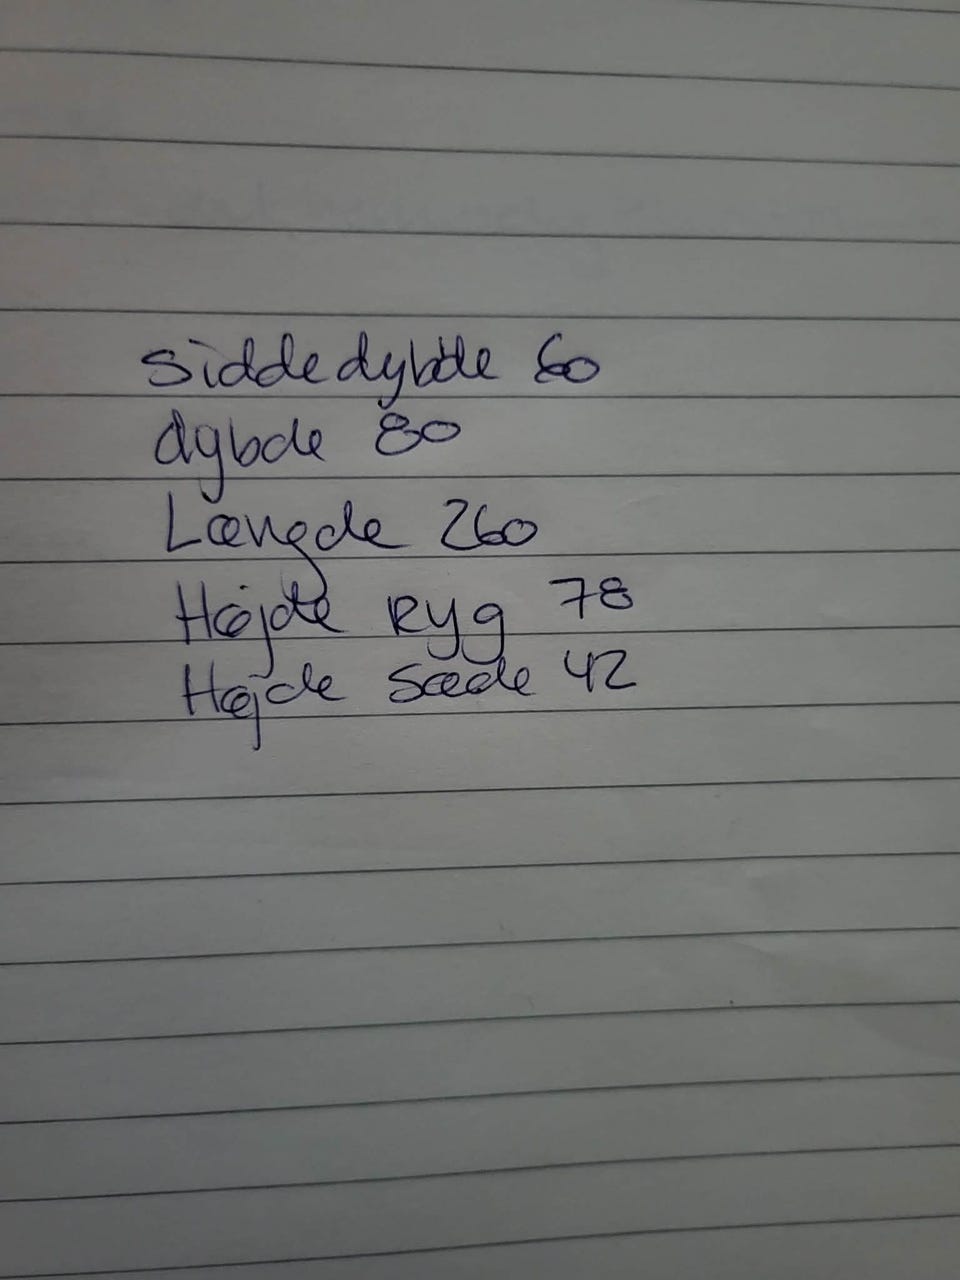 siddedybde 60
dybde 80
Længde 260
Højde Ryg 78
Højde Sæde 42